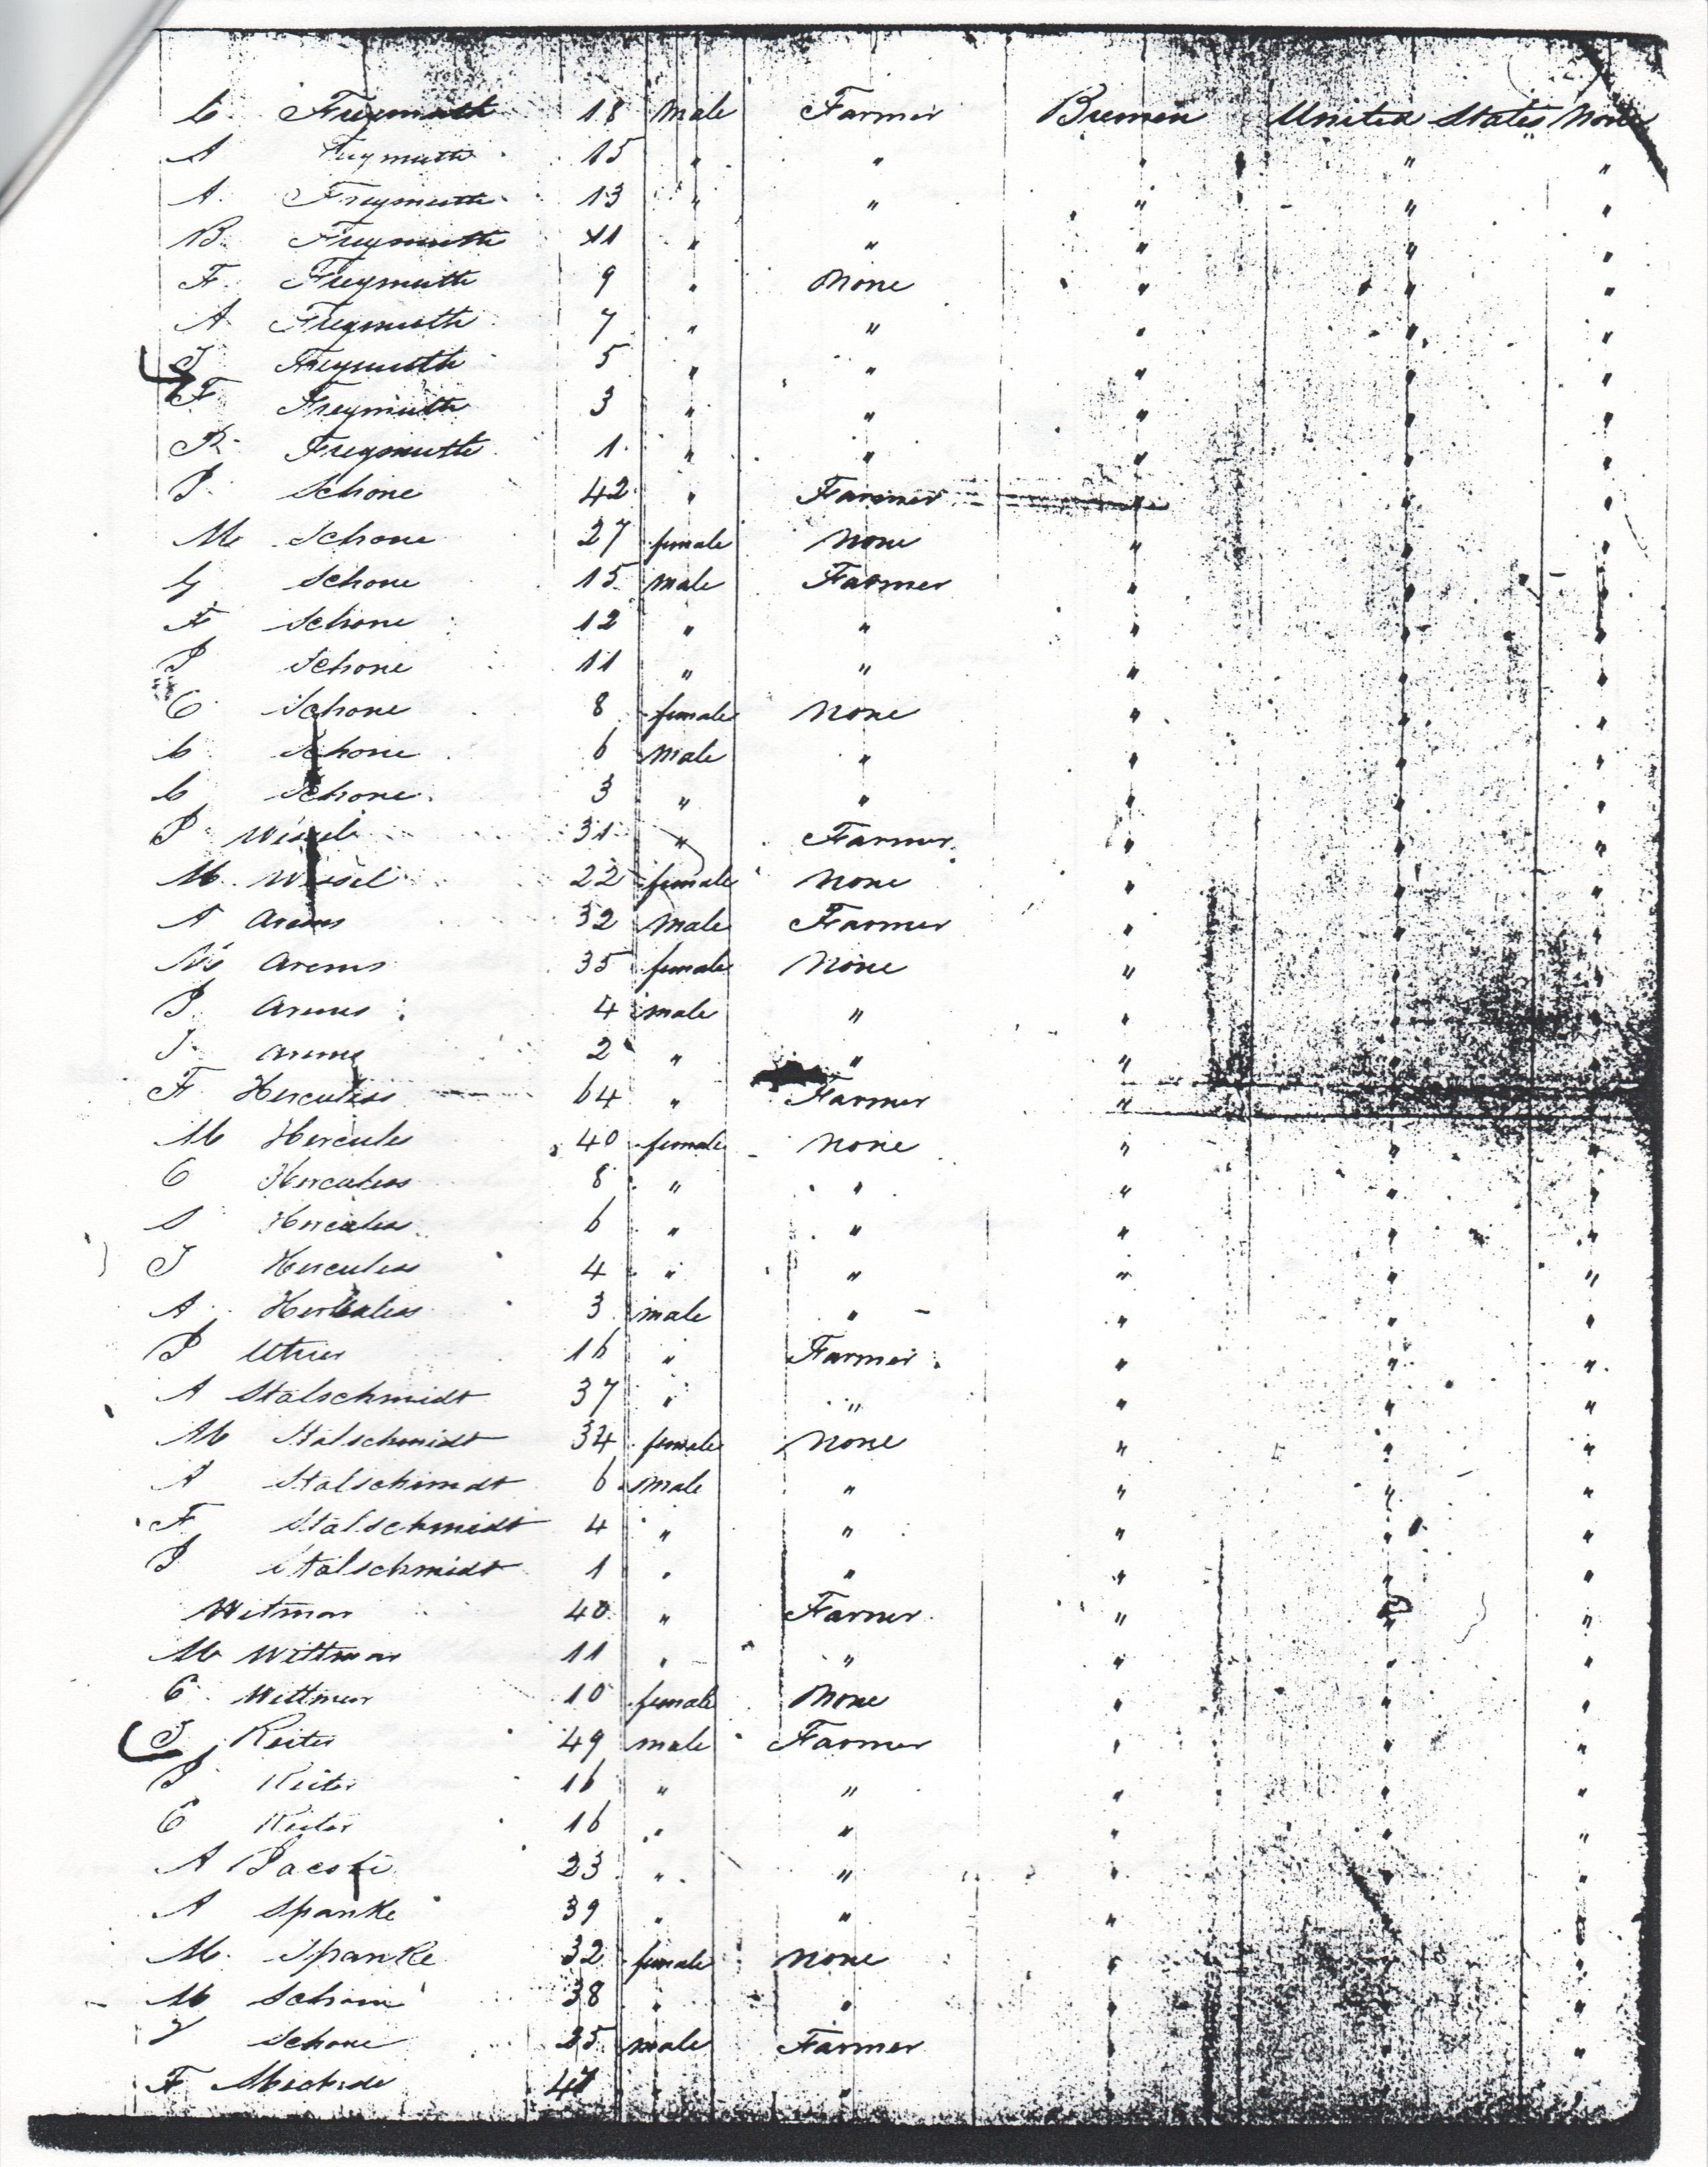 C. Freymuth 18 Male Farmer Bremen United States None
A Freymuth 15 " " " " "
A. Freymuth 13 " " " " "
B. Freymuth 11 " " " " "
F. Freymuth 9 " None " " "
A Freymuth 7 " " " " "
J Freymuth 5 " " " " "
F Freymuth 3 " " " " "
R. Freymuth 1 " " " " "
P Schone 42 " Farmer " " "
M Schone 27 female None " " "
G Schone 15 male Farmer " " "
F Schone 12 " " " " "
P Schone 11 " " " " "
C Schone 8 female None " " "
C Schone 6 Male " " " "
C Schone 3 " " " " "
P 31 " Farmer " " "
M. Weisel 22 female None " " "
A Arens 32 Male Farmer " " "
Arens 35 female None " " "
P Arens 4 male " " " "
J. Arens 2 " " " " "
F Hercules 64 " Farmer " " "
M Hercules 40 female None " " "
C Hercules 8 " " " " "
S Hercules 6 " " " " "
J Hercules 4 " " " " "
A. Hercules 3 male " " " "
P 16 " Farmer " " "
A Stalschmidt 37 " " " " "
M Stalschmidt 34 female None " " "
A Stalschimdt 6 male " " " "
F Stalschmidt 4 " " " " "
P Stalschmidt 1 " " " " "
Witman 40 " Farmer " " "
M Wittman 11 " " " " "
C. Wittman 10 female None " " "
J Reiter 49 male Farmer " " "
P Reiter 16 " " " " "
C Reiter 16 " " " " "
A 23 " " " " "
A Spanke 39 " " " " "
M. Spanke 32 female None " " "
M Schone 38 " " " " "
Schone 35 male Farmer " " "
F " " " " "